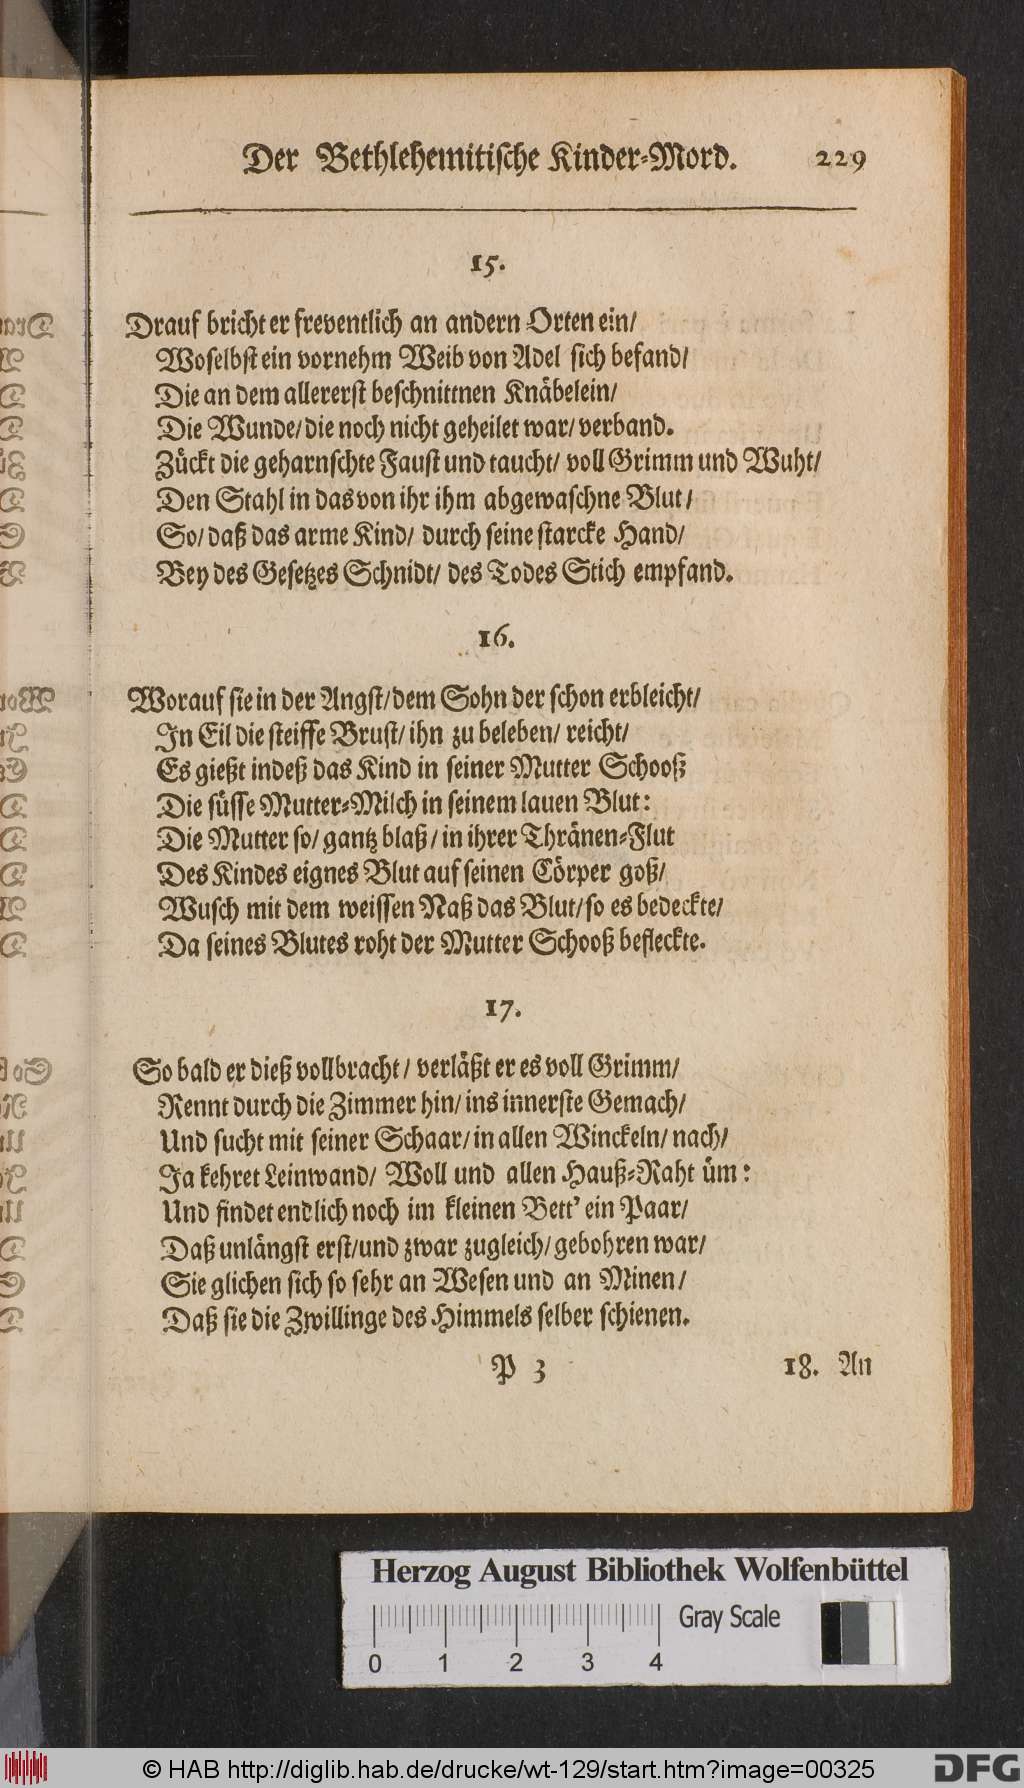 Der Bethlehemitische Kinder-Mord. 229
15.
Drauf bricht er freventlich an andern Orten ein/
Woselbst ein vornehm Weib von Adel sich befand/
Die an dem allererst beschnittnen Knäbelein/
Die Wunde/ die noch nicht geheilet war/ verband.
Zückt die geharnschte Faust und taucht/ voll Grimm und Wuht/
Den Stahl in das von ihr ihm abgewaschne Blut/
So/ daß das arme Kind/ durch seine starcke Hand/
Bey des Gesetzes Schnidt/ des Todes Stich empfand.
16.
Worauf sie in der Angst/ dem Sohn der schon erbleicht/
In Eil die steiffe Brust/ ihn zu beleben/ reicht/
Es gießt indeß das Kind in seiner Mutter Schooß
Die süsse Mutter-Milch in seinem lauen Blut:
Die Mutter so/ gantz blaß/ in ihrer Thränen-Flut
Des Kindes eignes Blut auf seinen Cörper goß/
Wusch mit dem weissen Naß das Blut/ so es bedeckte/
Da seines Blutes roht der Mutter Schooß befleckte.
17.
So bald er dieß vollbracht/ verläßt er es voll Grimm/
Rennt durch die Zimmer hin/ ins innerste Gemach/
Und sucht mit seiner Schaar/ in allen Winckeln/ nach/
Ja kehret Leinwand/ Woll und allen Hauß-Raht üm:
Und findet endlich noch im kleinen Bett' ein Paar/
Daß unlängst erst/ und zwar zugleich/ gebohren war/
Sie glichen sich so sehr an Wesen und an Minen/
Daß sie die Zwillinge des Himmels selber schienen.
P 3 18. An
Herzog August Bibliothek Wolfenbüttel
Gray Scale
0 1 2 3 4
© HAB http://diglib.hab.de/drucke/wt-129/start.htm?image=00325
DFG